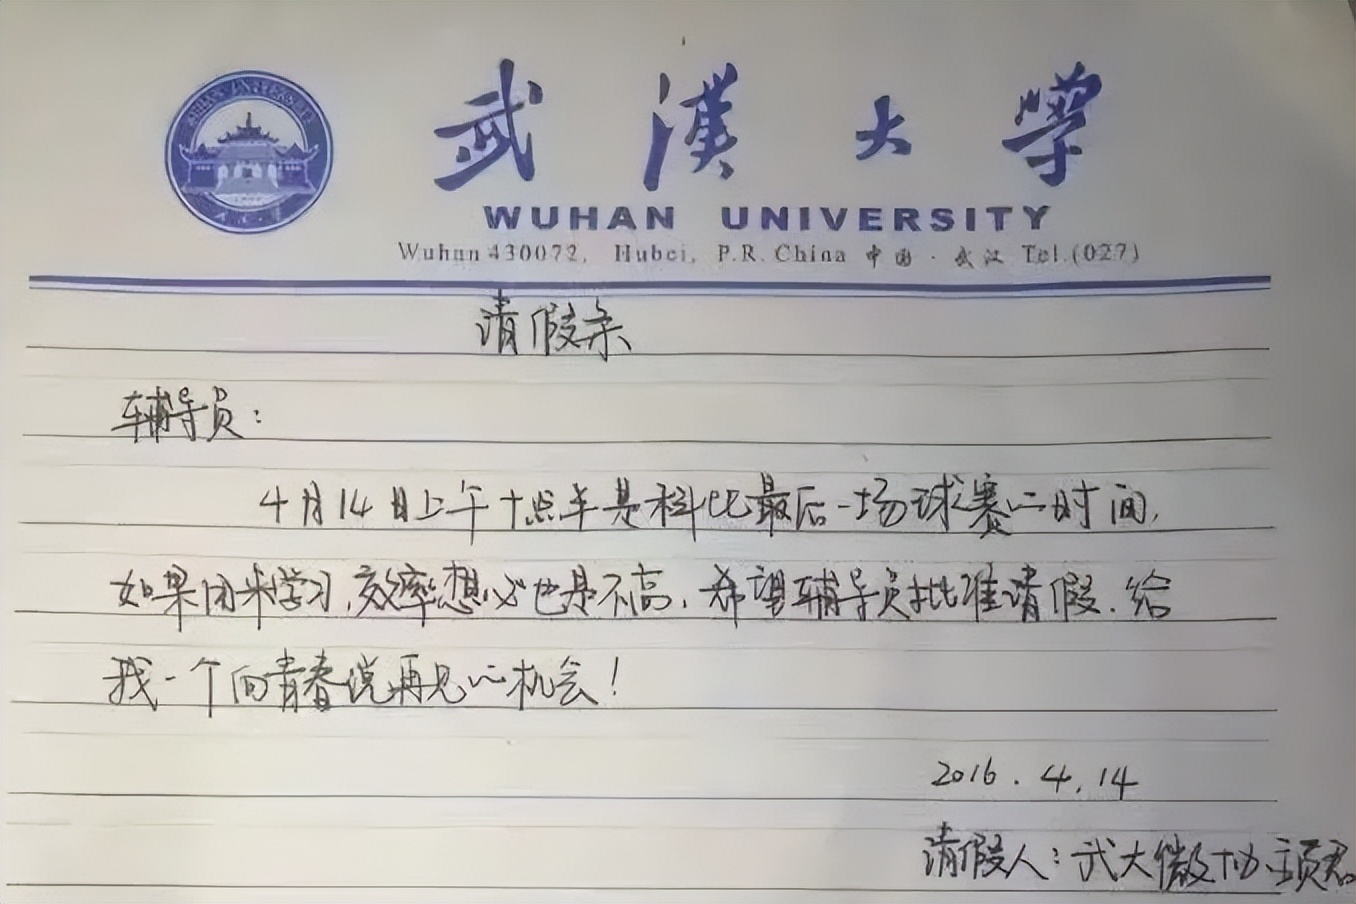 武漢大學
WUHAN UNIVERSITY
Wuhan 430072, Hubei, P.R. China 中国·武汉 Tel.(027)
请假条
辅导员:
4月14日上午十点半是科比最后一场球赛的时间,
如果用来学习,效率想必也是不高,希望辅导员批准请假,给
我一个向青春说再见的机会!
2016.4.14
请假人:武大微协主页君